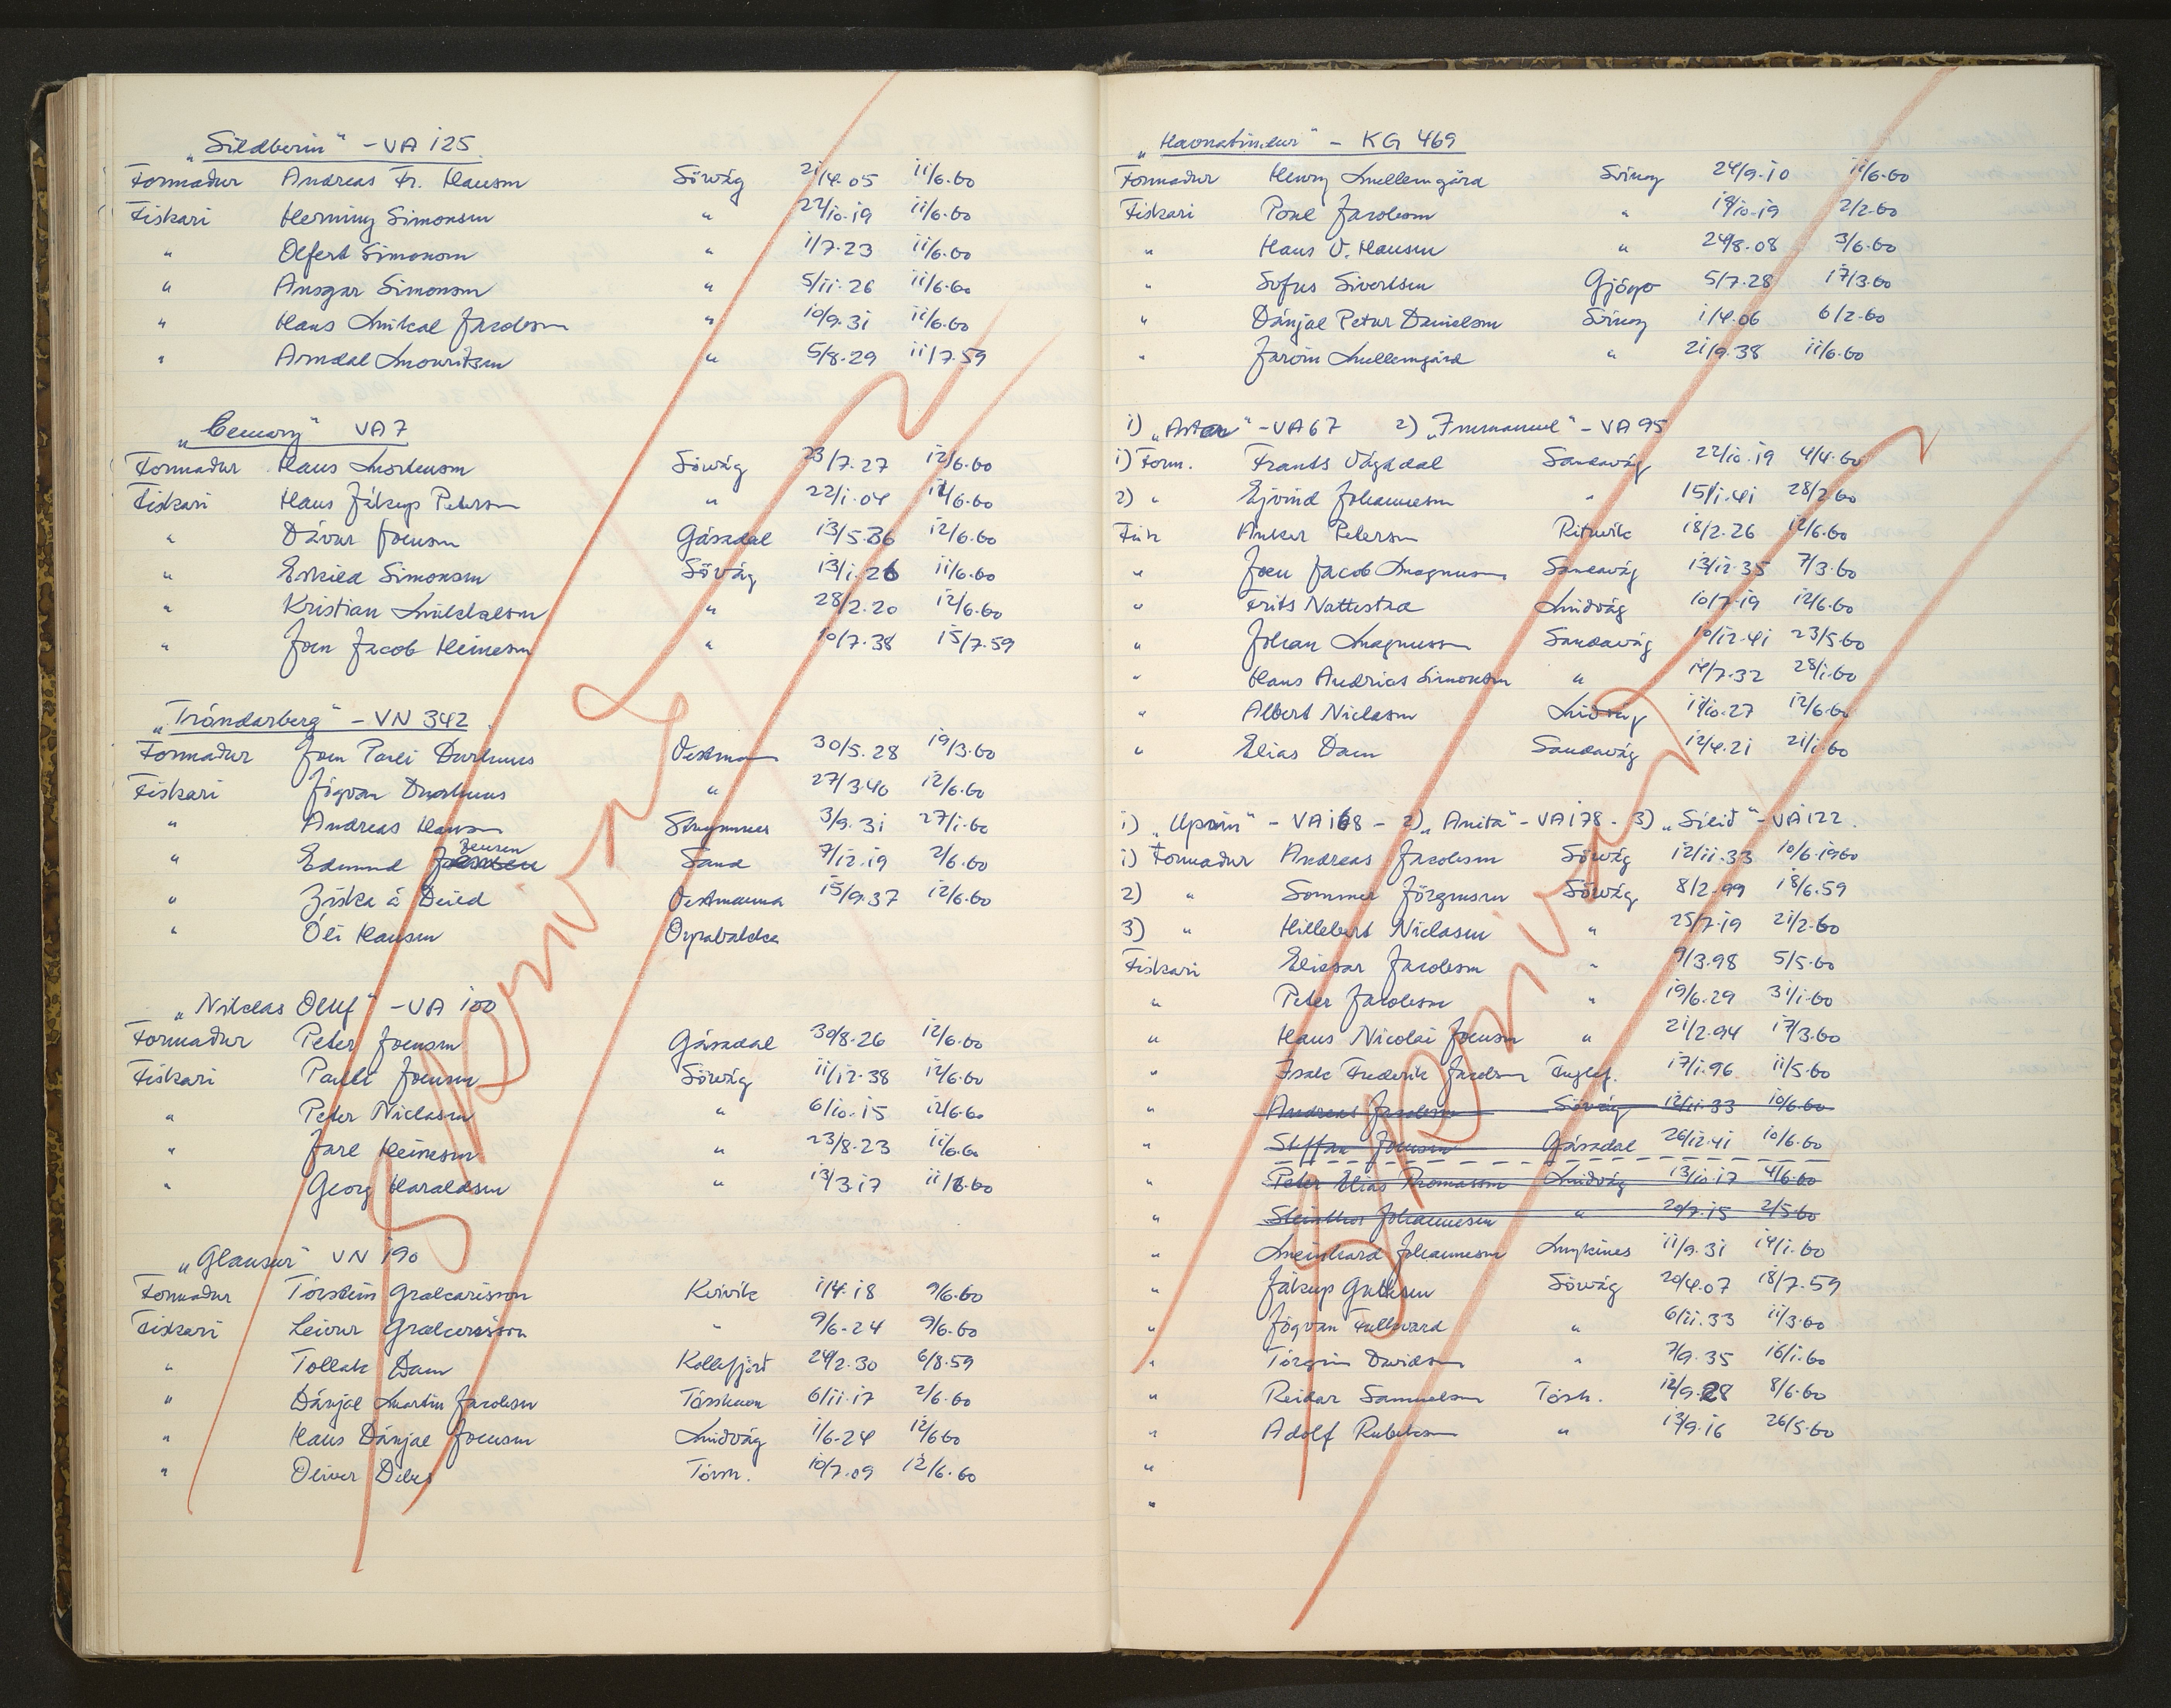 „Sildberin" - VA 125
Formaður Andreas Fr. Hansen Sörvág 21/4-05 11/6-60
Fiskari Herning Simonsen " 22/10-19 11/6-60
" Olfert Simonsen " 1/7-23 11/6-60
" Ansgar Simonsen " 5/11-26 11/6-60
" Hans Mikal Jacobsen " 10/9-31 11/6-60
" Arndal Mouritsen " 5/8-29 11/7-59
VA 7
Formaður Hans Mortensen Sörvág 23/7-27 12/6-60
Fiskari Hans Jákup Petersen " 22/1-04 12/6-60
" Dávur Joensen Gásadal 13/5-36 12/6-60
" Eskild Simonsen Sörvág 13/1-26 11/6-60
" Kristian Mikkelsen " 28/2-20 12/6-60
" Joen Jacob Heinesen " 10/7-38 15/7-59
„Tróndarberg" - VN 342
Formaður Joen Pauli Durhuus Vestman 30/5-28 19/3-60
Fiskari Jógvan Durhuus " 27/3-40 12/6-60
" Andreas Hansen Strymnes 3/9-31 27/1-60
" Edmund Jensen Sand 7/12-19 2/6-60
" Ziska á Deild Vestmanna 15/9-37 12/6-60
" Óli Hansen Oyrabakka
„Niklas Oluf" - VA 100
Formaður Peter Joensen Gásadal 30/8-26 12/6-60
Fiskari Pauli Joensen Sörvág 11/12-38 12/6-60
" Peter Niclasen " 6/10-15 12/6-60
" Jarl Heinesen " 23/8-23 11/6-60
" Georg Haraldsen " 13/3-17 11/6-60
„Glansur" VN 190
Formaður Tórstein Grækarisson Kvívík 1/4-18 9/6-60
Fiskari Leivur Grækarisson " 9/6-24 9/6-60
" Tollak Dam Kollefjörð 24/2-30 6/8-59
" Dánjal Martin Jacobsen Tórshavn 6/11-17 2/6-60
" Hans Dánjal Joensen Miðvág 1/6-24 12/6-60
" Oliver Debes Tórsh. 10/7-09 12/6-60
„Havnatindur" - KG 469
Formaður Henry Mellemgård Svinoy 24/9-10 11/6-60
Fiskari Poul Jacobsen " 19/10-19 2/2-60
" Hans V. Hansen " 24/8-08 3/6-60
" Sofus Sivertsen Gjógv 5/7-28 17/3-60
" Dánjal Petur Danielsen Svinoy 1/4-06 6/2-60
" Jarvin Mellemgård " 21/9-38 11/6-60
1) - VA 67 2) „Immanuel" - VA 95
1) Form. Frants Vágadal Sandavág 22/10-19 4/4-60
2) " Ejvind Johannesen " 15/1-41 28/2-60
Fisk Anker Petersen Rituvík 18/2-26 12/6-60
" Joen Jacob Magnussen Sandavág 13/12-35 7/3-60
" Frits Nattestad Miðvág 10/7-19 12/6-60
" Johan Magnussen Sandavág 10/12-41 23/5-60
" Hans Andrias Simonsen " 14/7-32 28/1-60
" Albert Niclasen Miðvág 11/10-27 12/6-60
" Elias Dam Sandavág 12/4-21 21/1-60
1) „Upsin" - VA 168 - 2) „Anita" - VA 178 - 3) „Silið" - VA 122.
1) Formaður Andreas Jacobsen Sörvág 12/11-33 10/6-1960
2) " Sommer Jörgensen Sörvág 8/2-99 18/6-59
3) " Hillebert Niclasen " 25/7-19 21/2-60
Fiskari Eliesar Jacobsen " 9/3-98 5/5-60
" Peter Jacobsen " 19/6-29 31/1-60
" Hans Nicolai Joensen " 21/2-94 17/3-60
" Isak Frederik Jacobsen Fuglef. 17/1-96 11/5-60
" Andreas Jacobsen Sörvág 12/11-33 10/6-60
" Steffan Joensen Gásadal 26/12-41 10/6-60
Peter Elias Thomassen Miðvág 13/10-17 4/6-60
" Steinthor Johannesen " 20/7-15 2/5-60
" Meinhard Johannesen Mykines 11/9-31 14/1-60
" Jákup Sörvág 20/4-07 18/7-59
" Jógvan Fullvard " 6/11-33 11/3-60
" Tórgrim Davidsen " 7/9-35 16/1-60
" Reidar Samuelsen Tórsh. 12/9-28 8/6-60
" Adolf Rubeksen " 13/9-16 26/5-60
"
"